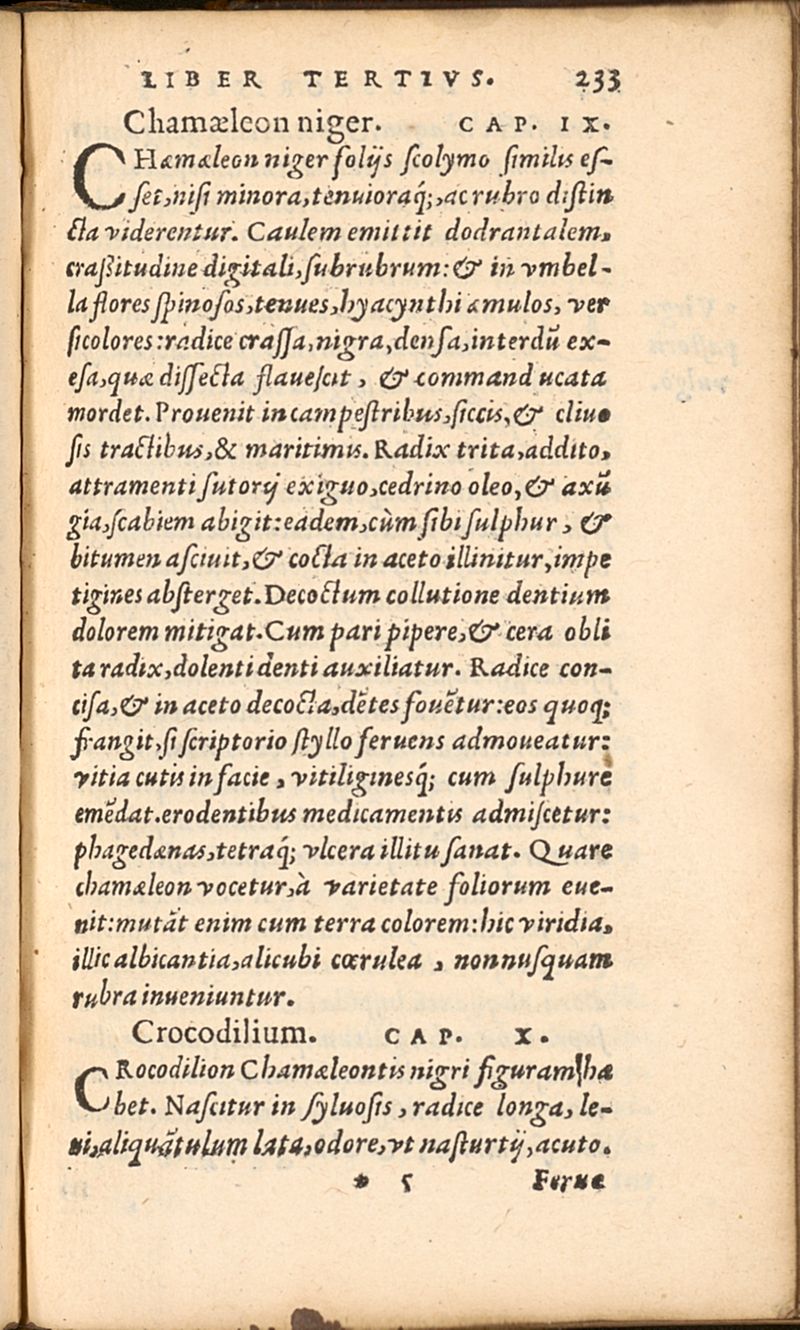 LIBER TERTIVS. 233
Chamæleon niger. CAP. IX.
CHamæleon niger folijs scolymo similis es-
set, nisi minora, tenuioraq́;, ac rubro distin
cta viderentur. Caulem emittit dodrantalem,
crassitudine digitali, subrubrum: & in vmbel-
la flores spinosos, tenues, hyacynthi æmulos, ver
sicolores: radice crassa, nigra, densa, interdũ ex-
esa, quæ dissecta flauescit, & commanducata
mordet. Prouenit in campestribus, siccis, & cliuo
sis tractibus, & maritimis. Radix trita, addito,
attramenti sutorij exiguo, cedrino oleo, & axũ
gia, scabiem abigit: eadem, cùm sibi sulphur, &
bitumen asciuit, & cocta in aceto illinitur, impe
tigines absterget. Decoctum collutione dentium
dolorem mitigat. Cum pari pipere, & cera obli
ta radix, dolenti denti auxiliatur. Radice con-
cisa, & in aceto decocta, dẽtes fouẽtur: eos quoq;
frangit, si scriptorio styllo feruens admoueatur:
vitia cutis in facie, vitiliginesq́; cum sulphure
emẽdat. erodentibus medicamentis admiscetur:
phagedænas, tetraq́; vlcera illitu sanat. Quare
chamæleon vocetur, à varietate foliorum eue-
nit: mutãt enim cum terra colorem: hic viridia,
illic albicantia, alicubi cœrulea, nonnusquam
rubra inueniuntur.
Crocodilium. CAP. X.
CRocodilion Chamæleontis nigri figuram ha
bet. Nascitur in syluosis, radice longa, le-
ui, aliquãtulum lata, odore, vt nasturtij, acuto.
* 5 Feruæ